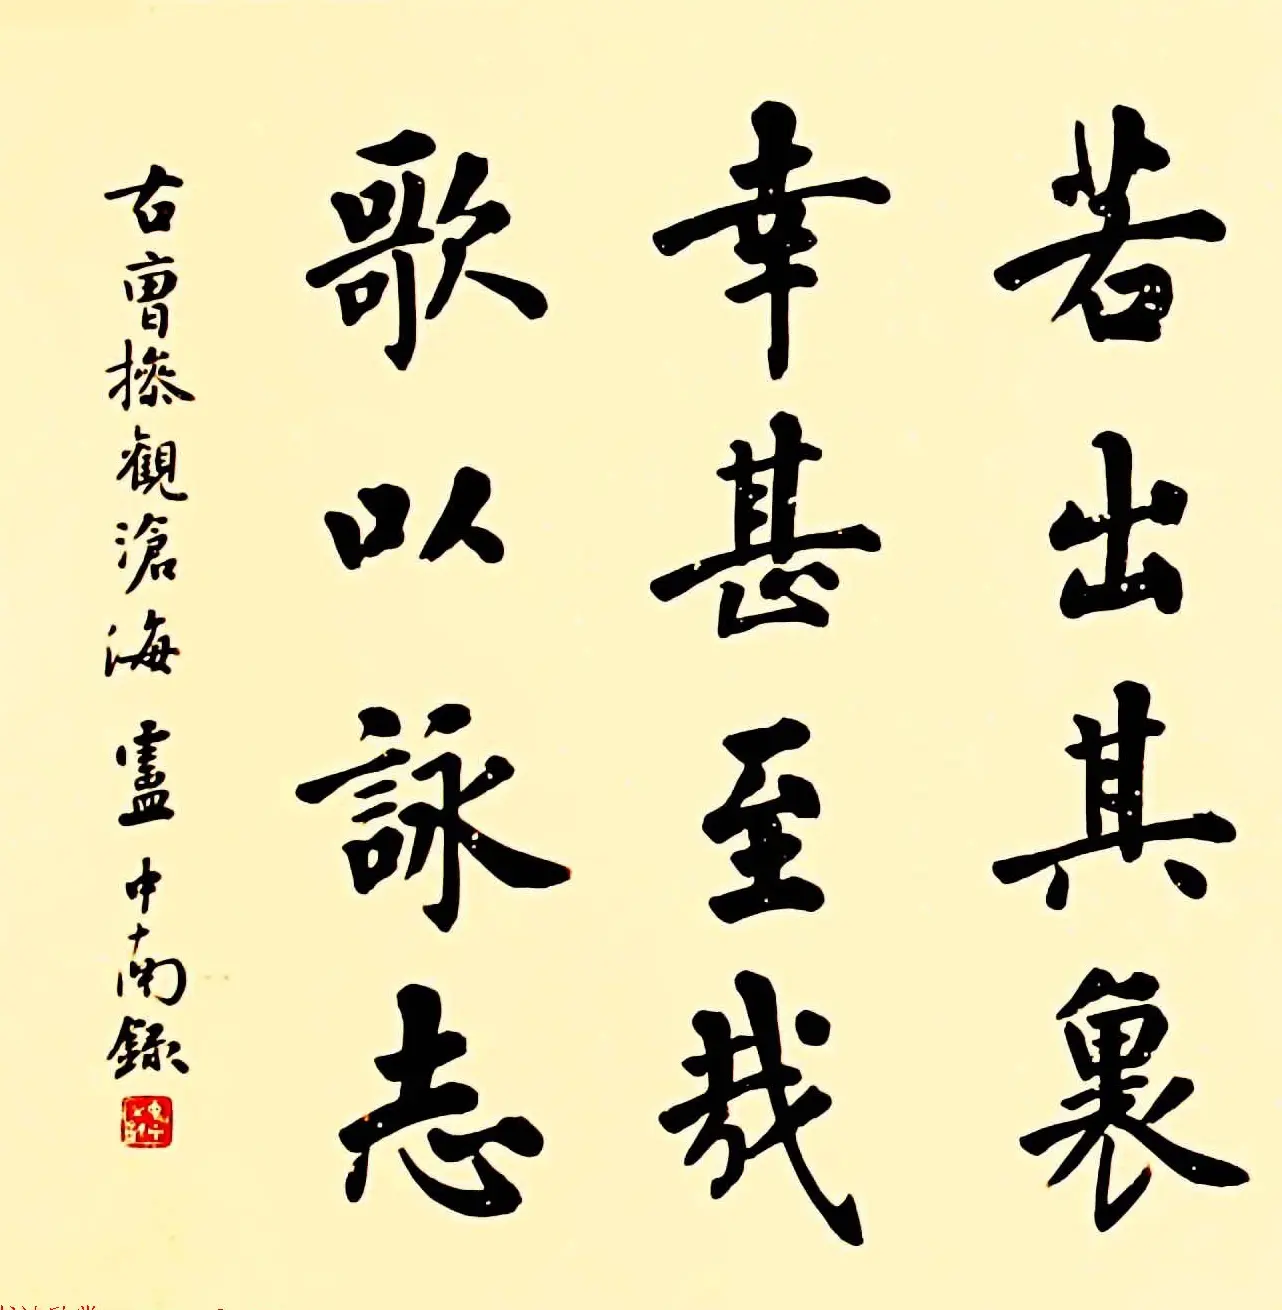 若出其裏
幸甚至哉
歌以詠志
古曹操觀滄海 盧中南錄